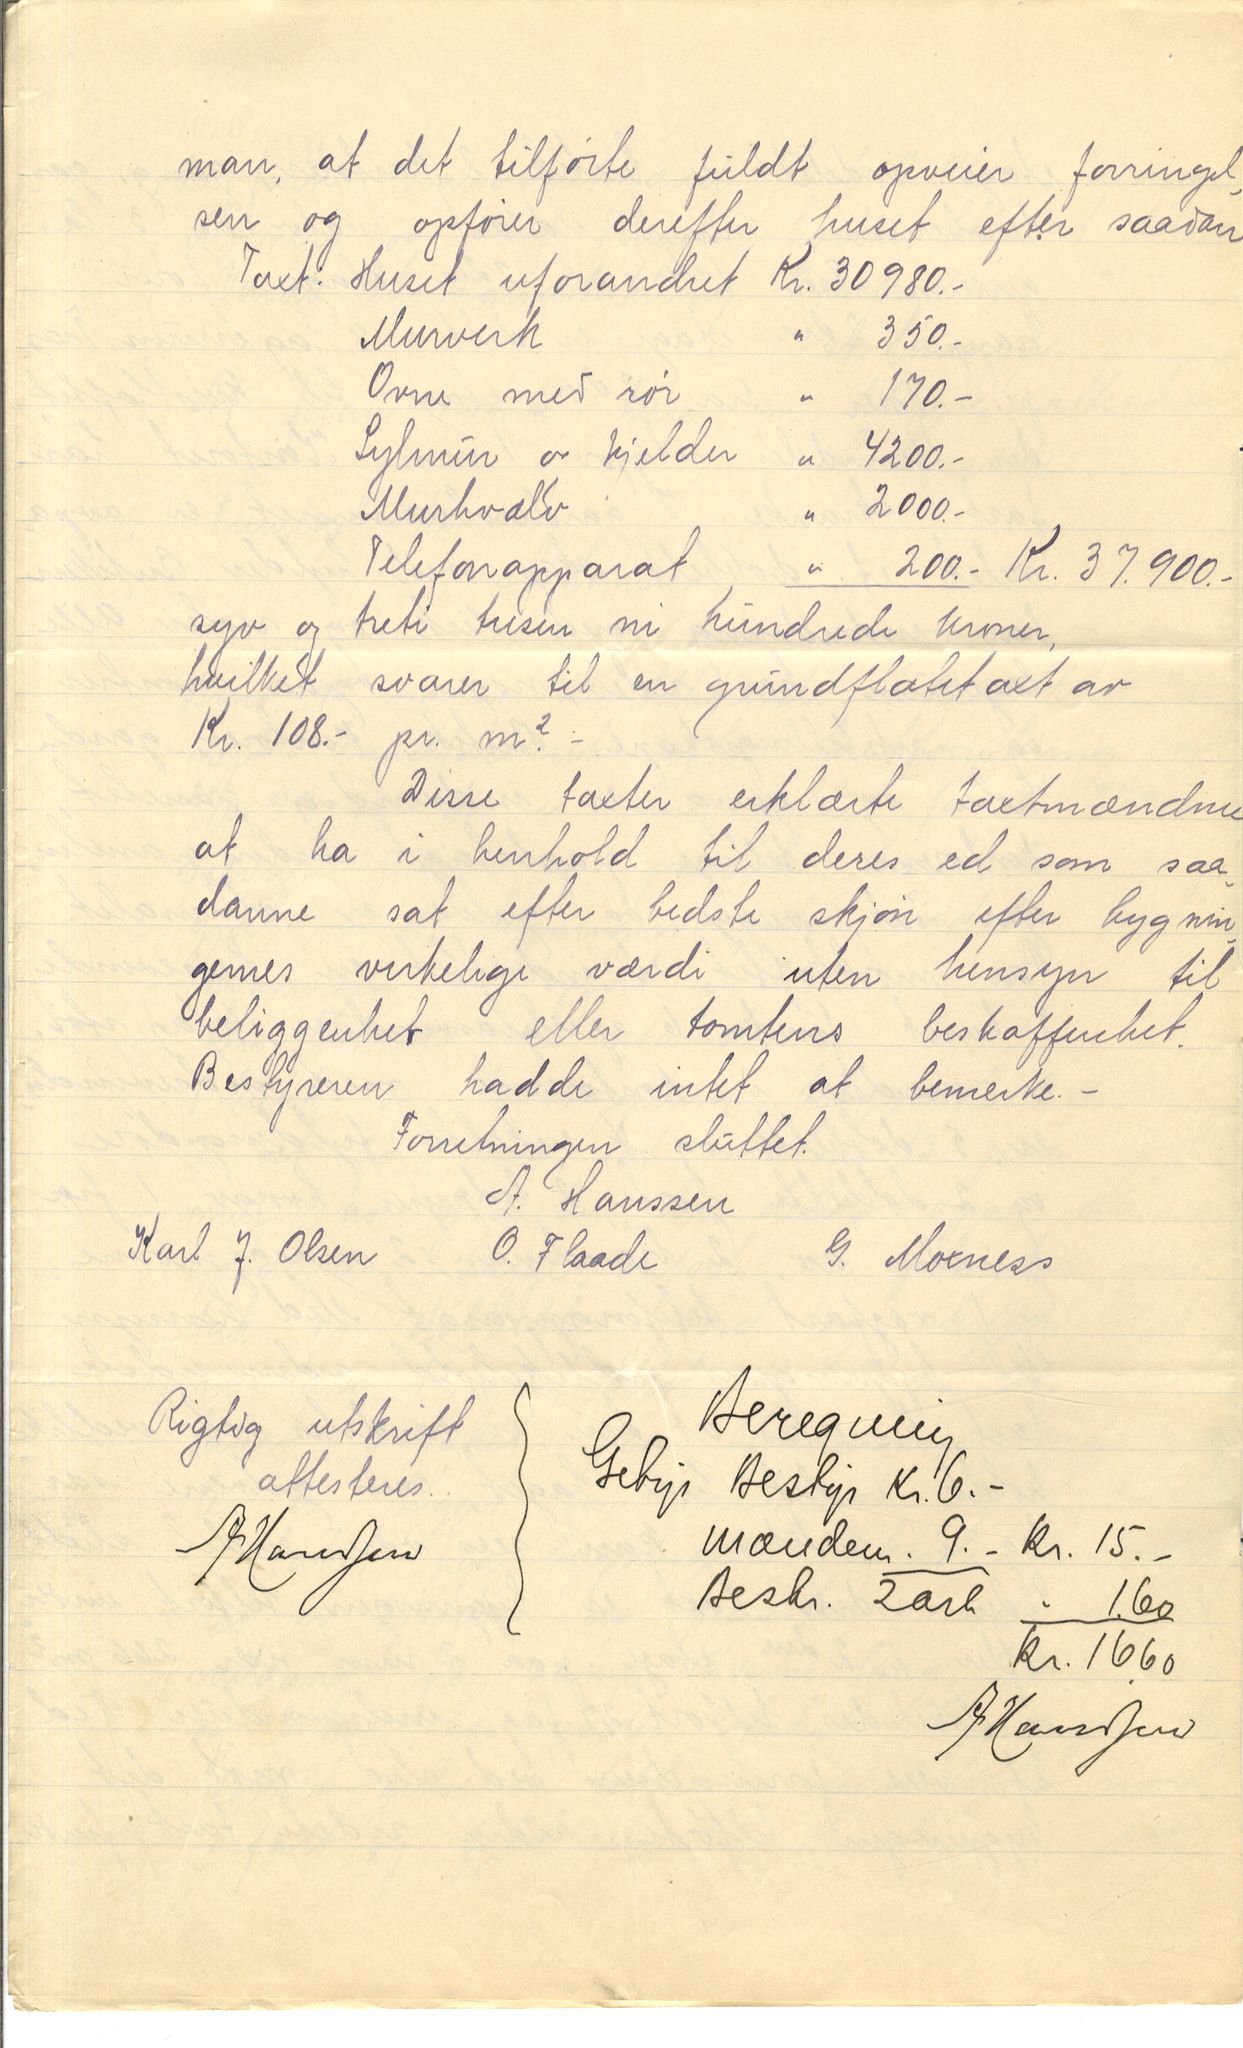 man, at det tilførte fuldt opveier forringel-
sen og opfører derefter huset efter saadan
Taxt: Huset uforandret Kr. 30980.-
Murverk " 350.-
Ovne med rør " 170.-
Sylmur og kjelder " 4200.-
Murhvælv " 2000.-
Telefonapparat " 200.- Kr. 37.900.-
syv og treti tusen ni hundrede kroner,
hvilket svarer til en grundflatetaxt av
Kr. 108.- pr. m².-
Disse taxter erklærte taxtmændene
at ha i henhold til deres ed som saa-
danne sat efter bedste skjøn efter bygnin-
gernes verkelige værdi uten hensyn til
beliggenhet eller tomtens beskaffenhet.
Bestyreren hadde intet at bemerke.-
Forretningen sluttet.
A. Hanssen
Karl J. Olsen O. Flaade G. Moxness
Rigtig utskrift
attesteres.
A Hanssen
Beregning
Gebyr Bestyr Kr. 6.-
mændene. 9.- Kr. 15.-
Beskr. 2 ark " 1.60
Kr. 16.60
A Hanssen